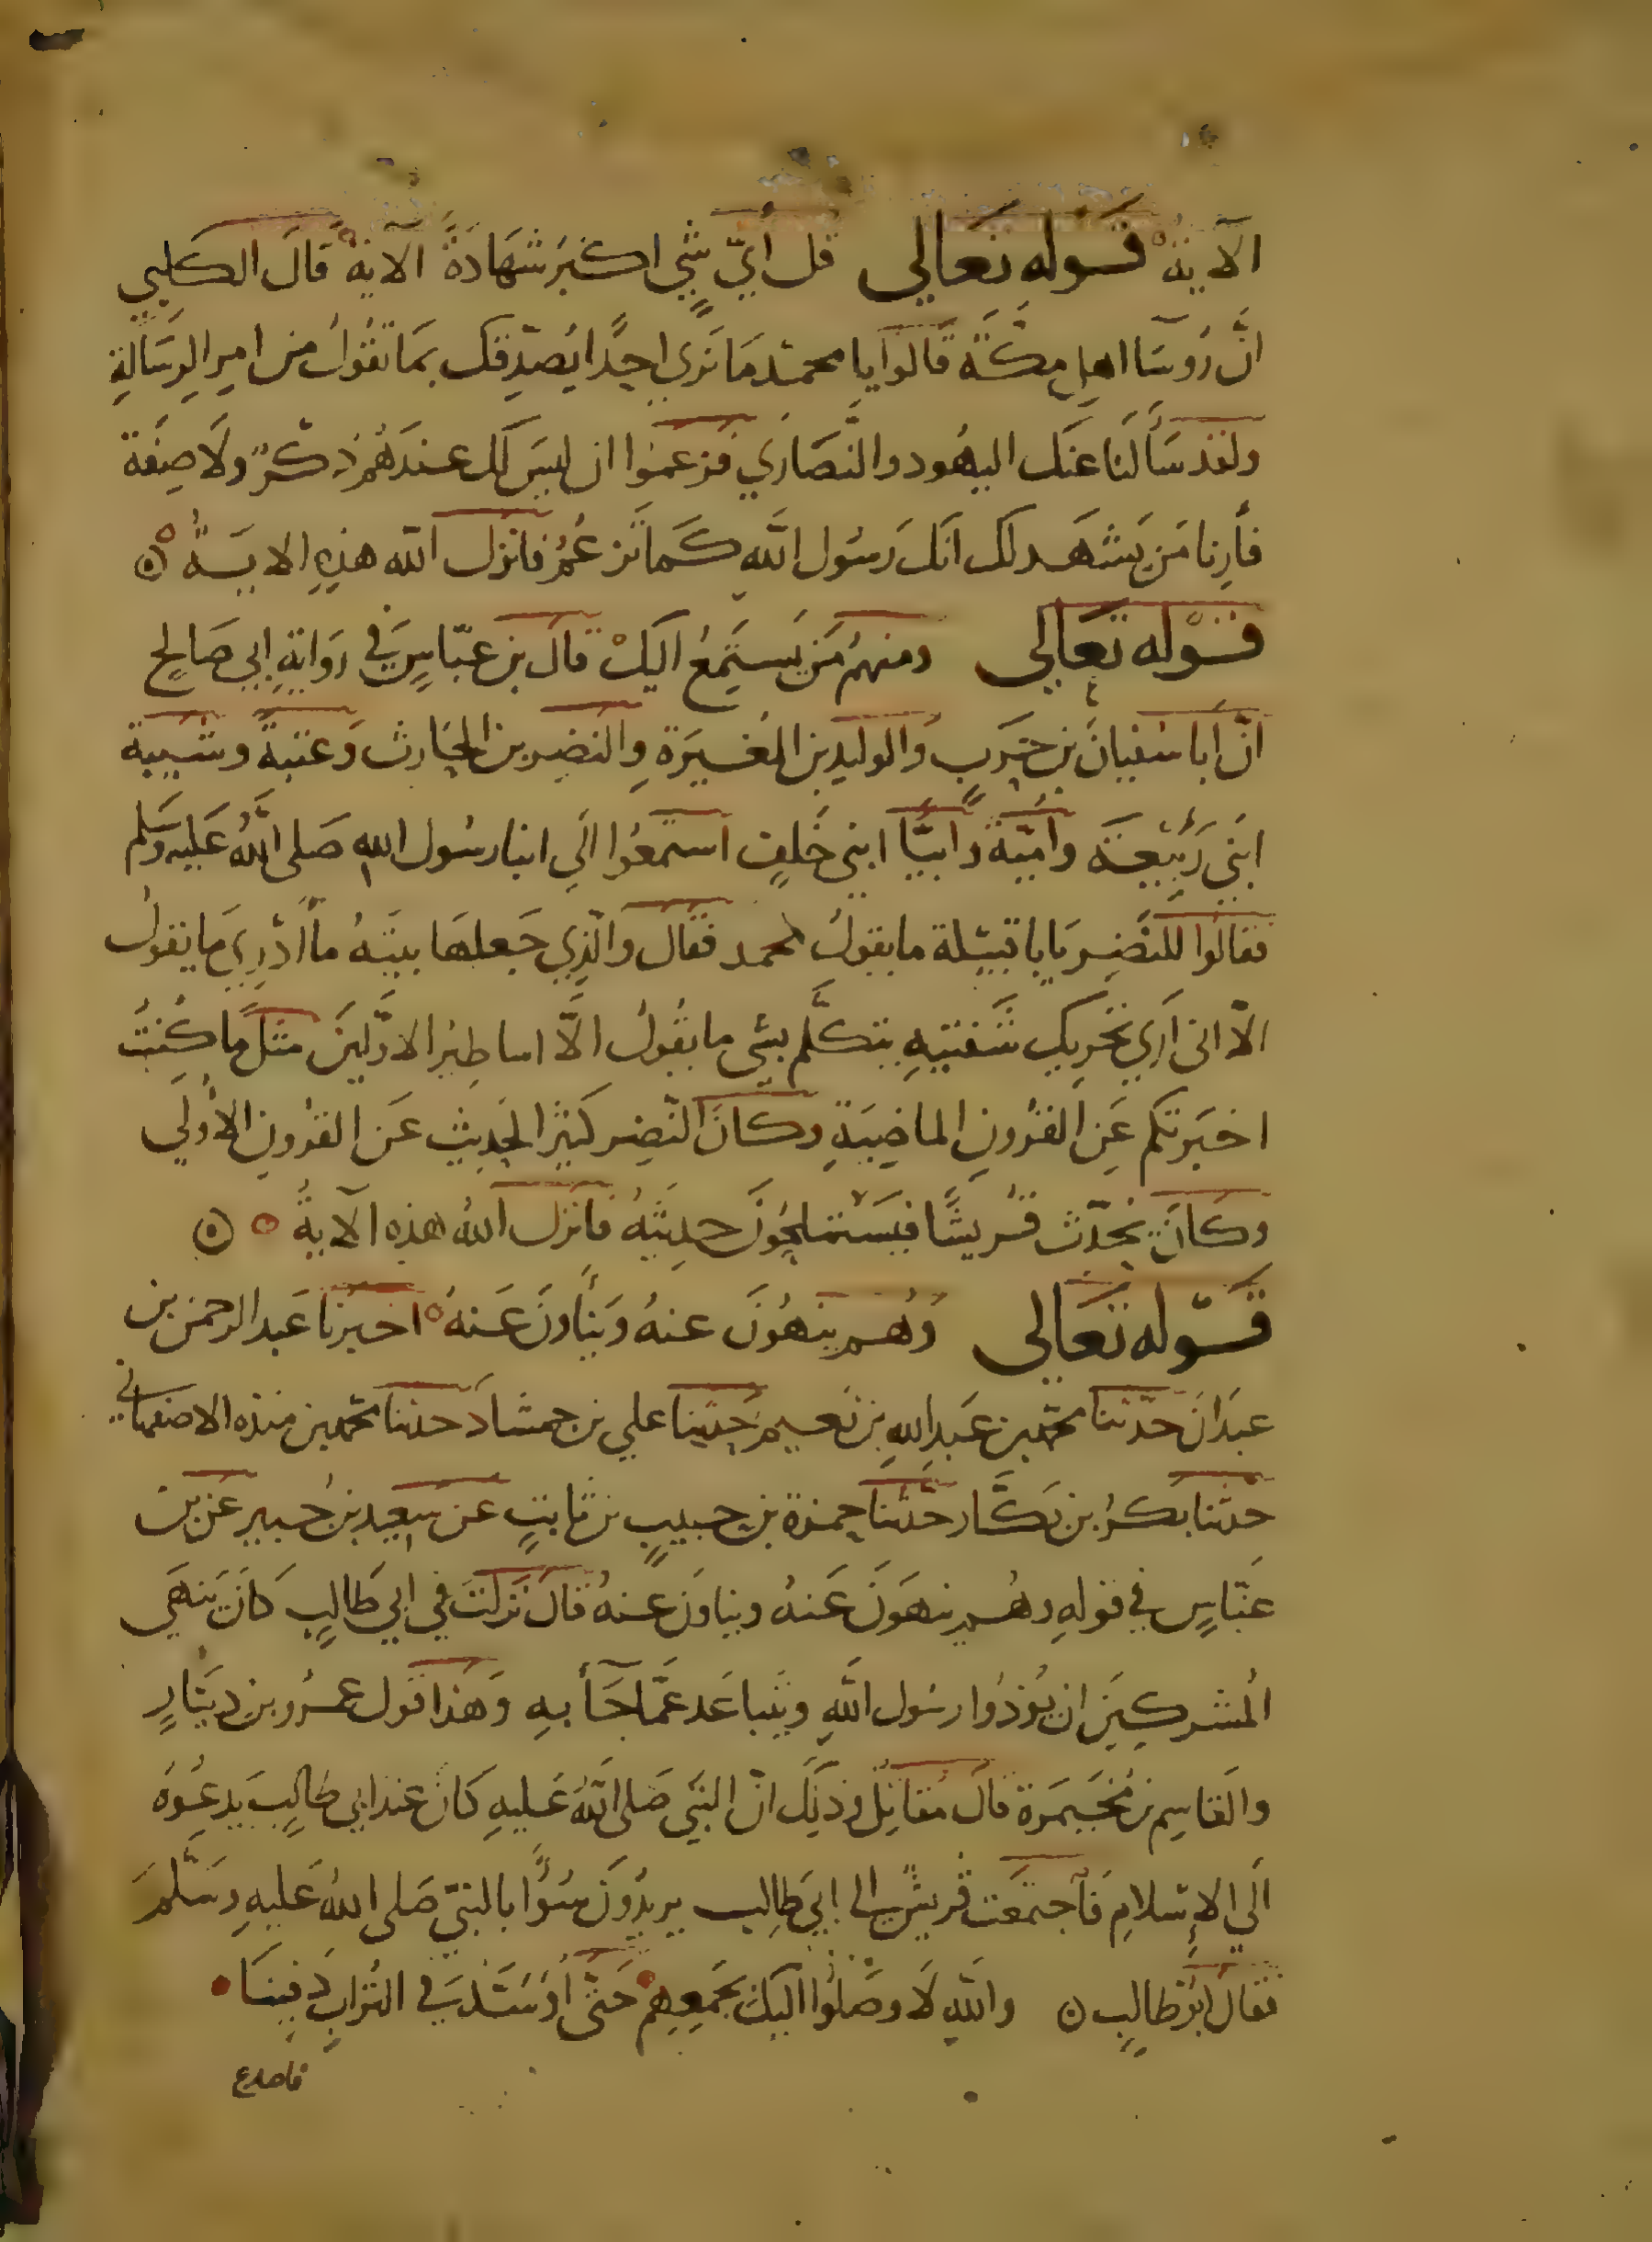 الآية قوله تعالى قل أيّ شي اكبر شهادةً الآية قال الكلبي
انّ رؤسا اهل مكّة قالوا يا محمد ما نرى احدًا يصدّقك بما تقول من امر الرسالة
ولقد سألنا عنك اليهود والنّصارى فزعموا ان ليس لك عندهم ذكرٌ ولا صفة
فأرنا من يشهد لك انك رسول الله كما تزعم فانزل الله هذه الاية
قوله تعالى ومنهم من يستمع اليك قال بن عبّاس في رواية ابي صالح
انّ ابا سفيان بن حرب والوليد بن المغيرة والنضر بن الحارث وعتبة وشيبة
ابني ربيعة واميّة وابيّا ابني خلف استمعوا الى رسول الله صلى الله عليه وسلم
فقالوا للنضر يابا قتيلة ما يقول محمد فقال والذي جعلها بيته ما أدري ما يقول
الّا انى ارى تحريك شفتيه يتكلّم بشي ما يقول الّا اساطير الاوّلين مثل ما كنت
اخبرتكم عن القرون الماضية وكان النّضر كثير الحديث عن القرون الأولى
وكان يحدّث قريشًا فيستملحون حديثه فانزل الله هذه الآية
قوله تعالى وهم ينهون عنه وينأون عنه اخبرنا عبد الرحمن بن
عبدان حدّثنا محمّد بن عبد الله بن نعيم حدثنا علي بن حمشاد حدثنا محمد بن منده الاصفهاني
حدثنا بكر بن بكّار حدّثنا حمزة بن حبيبٍ بن ثابتٍ عن سعيد بن جبير عن بن
عبّاس في قوله وهم ينهون عنه ويناون عنه قال نزلت في ابي طالبٍ كان ينهى
المشركين ان يؤذوا رسول الله ويتباعد عمّا جآ به وهذا قول عمرو بن دينارٍ
والقاسم بن مخيمرة قال مقاتل وذلك انّ النبّي صلى الله عليه كان عند ابي طالب يدعوه
الى الإسلام فآجتمعت قريش الى ابي طالب يريدون سوًأ بالنبيّ صلى الله عليه وسلّم
فقال ابو طالبٍ والله لا وصلوا اليك بجمعهم حتى أوسّد في التراب دفينا
فاصدع